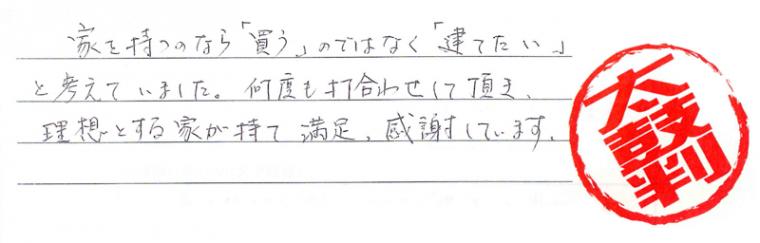 家を持つのなら「買う」のではなく「建てたい」
と考えていました。何度も打合わせして頂き、
理想とする家が持て満足、感謝しています。
太鼓判